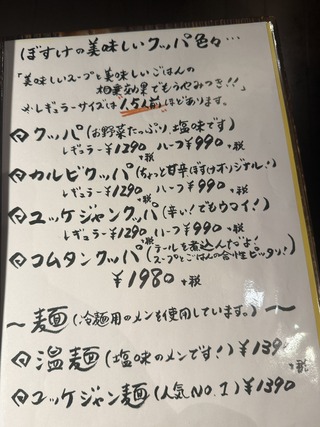 ぼすけの美味しいクッパ色々…
「美味しいスープと美味しいごはんの
相乗効果でもうやみつき!!」
※レギュラーサイズは1.5人前ほどあります。
クッパ(お野菜たっぷり、塩味です)
レギュラー¥1290 ハーフ¥990 +税
カルビクッパ(ちょっと甘辛ぼすけオリジナル!)
レギュラー¥1290 ハーフ¥990 +税
ユッケジャンクッパ(辛い!でもウマイ!)
レギュラー¥1290 ハーフ¥990 +税
コムタンクッパ(テールを煮込んだよ!
スープとごはんの合性ピッタリ!)
¥1980 +税
〜麺(冷麺用のメンを使用しています。)〜
温麺(塩味のメンです!)¥1390
ユッケジャン麺(人気NO.1)¥1390